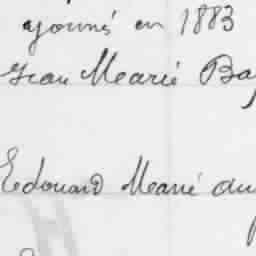 ajourné en 1883
Jean Marie Ba
Edouard Marie au